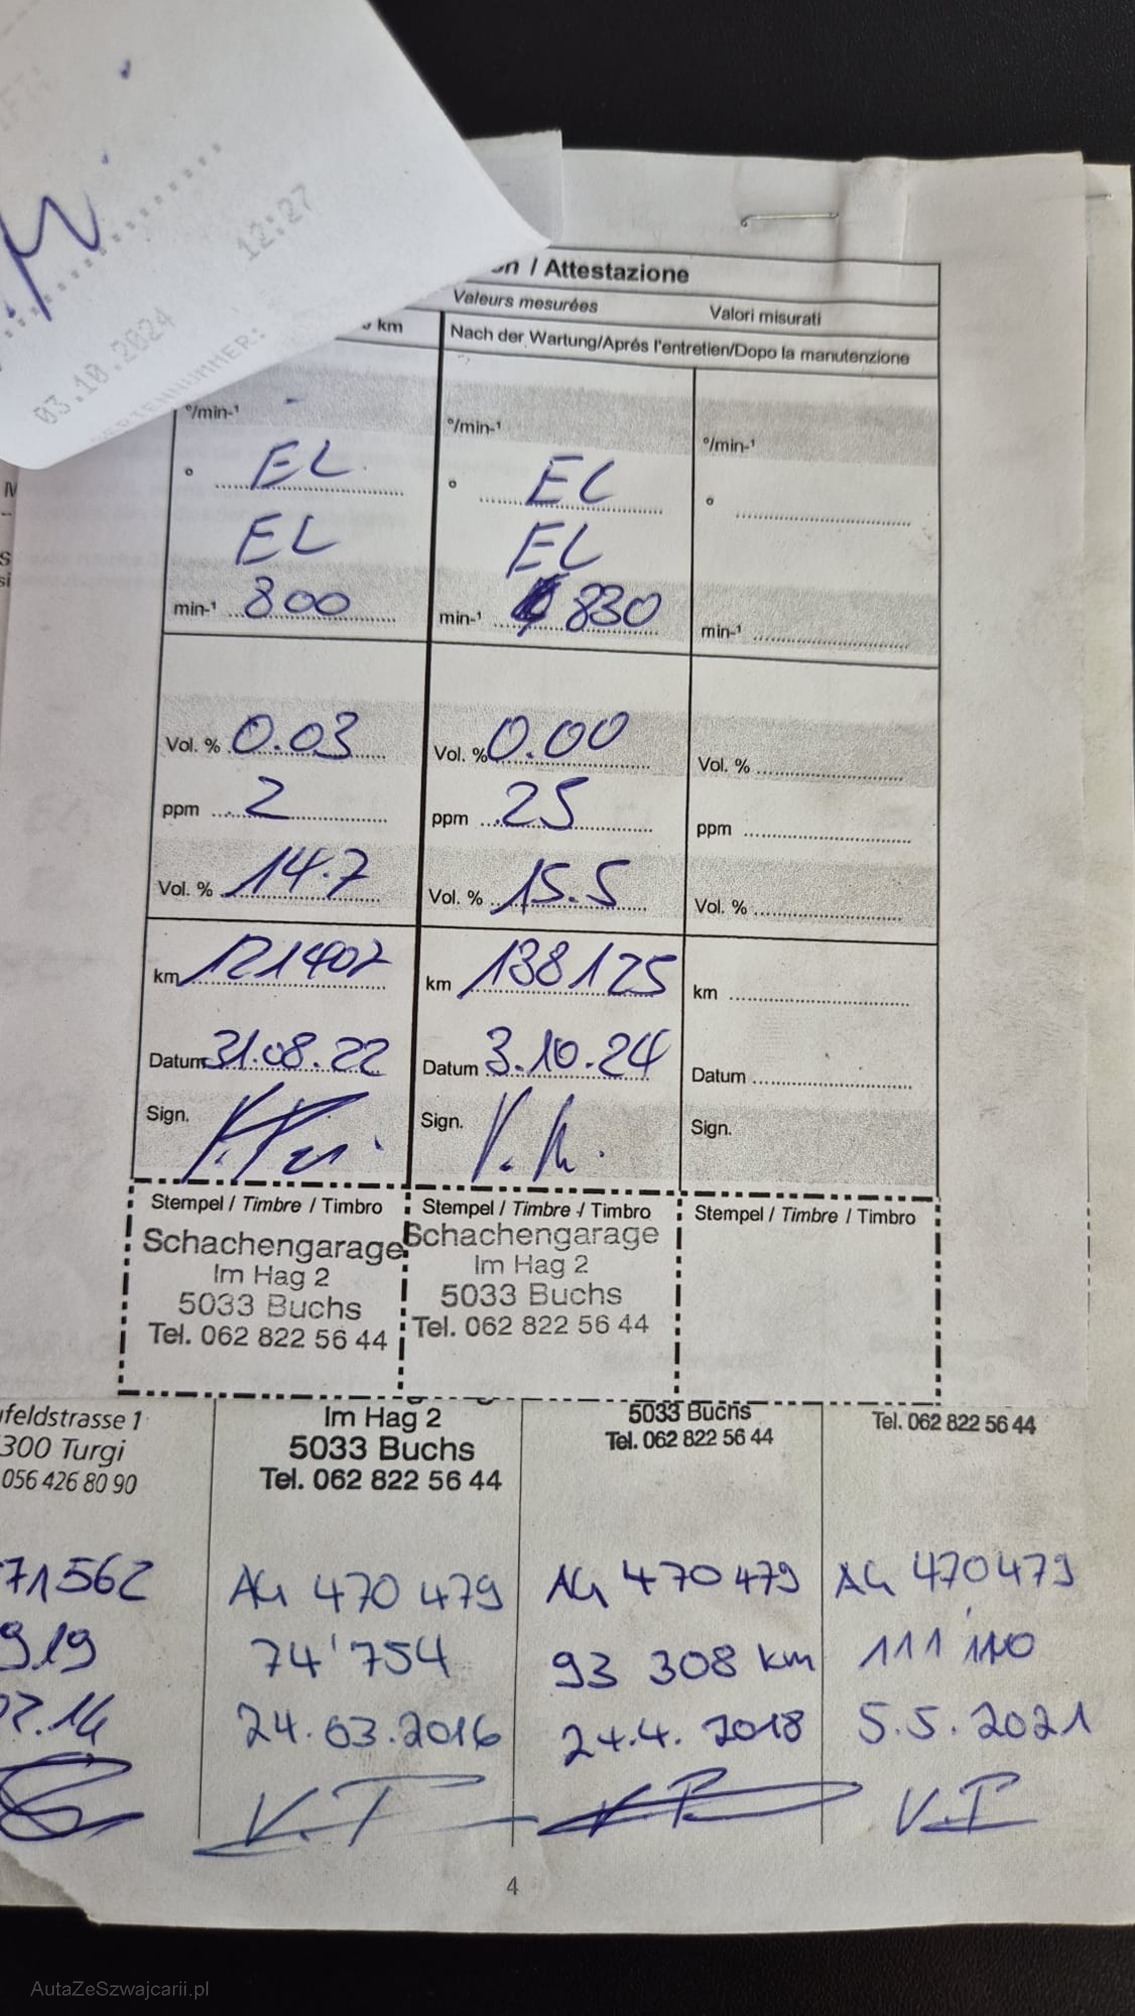 12:27
03.10.2024
on / Attestazione
Valeurs mesurées Valori misurati
km Nach der Wartung/Aprés l'entretien/Dopo la manutenzione
°/min-¹ °/min-¹ °/min-¹
° EL ° EL °
EL EL
min-¹ 800 min-¹ 830 min-¹
Vol. % 0.03 Vol. % 0.00 Vol. %
ppm 2 ppm 25 ppm
Vol. % 14.7 Vol. % 15.5 Vol. %
km 121407 km 138125 km
Datum 31.08.22 Datum 3.10.24 Datum
Sign. Sign. Sign.
Stempel / Timbre / Timbro Stempel / Timbre / Timbro Stempel / Timbre / Timbro
Schachengarage Schachengarage
Im Hag 2 Im Hag 2
5033 Buchs 5033 Buchs
Tel. 062 822 56 44 Tel. 062 822 56 44
feldstrasse 1 Im Hag 2 5033 Buchs Tel. 062 822 56 44
300 Turgi 5033 Buchs Tel. 062 822 56 44
056 426 80 90 Tel. 062 822 56 44
71562 AG 470 479 AG 470 479 AG 470479
9.19 74'754 93 308 km 111'110
24.03.2016 24.4. 2018 5.5.2021
V.T V.P V.P
4
AutaZeSzwajcarii.pl